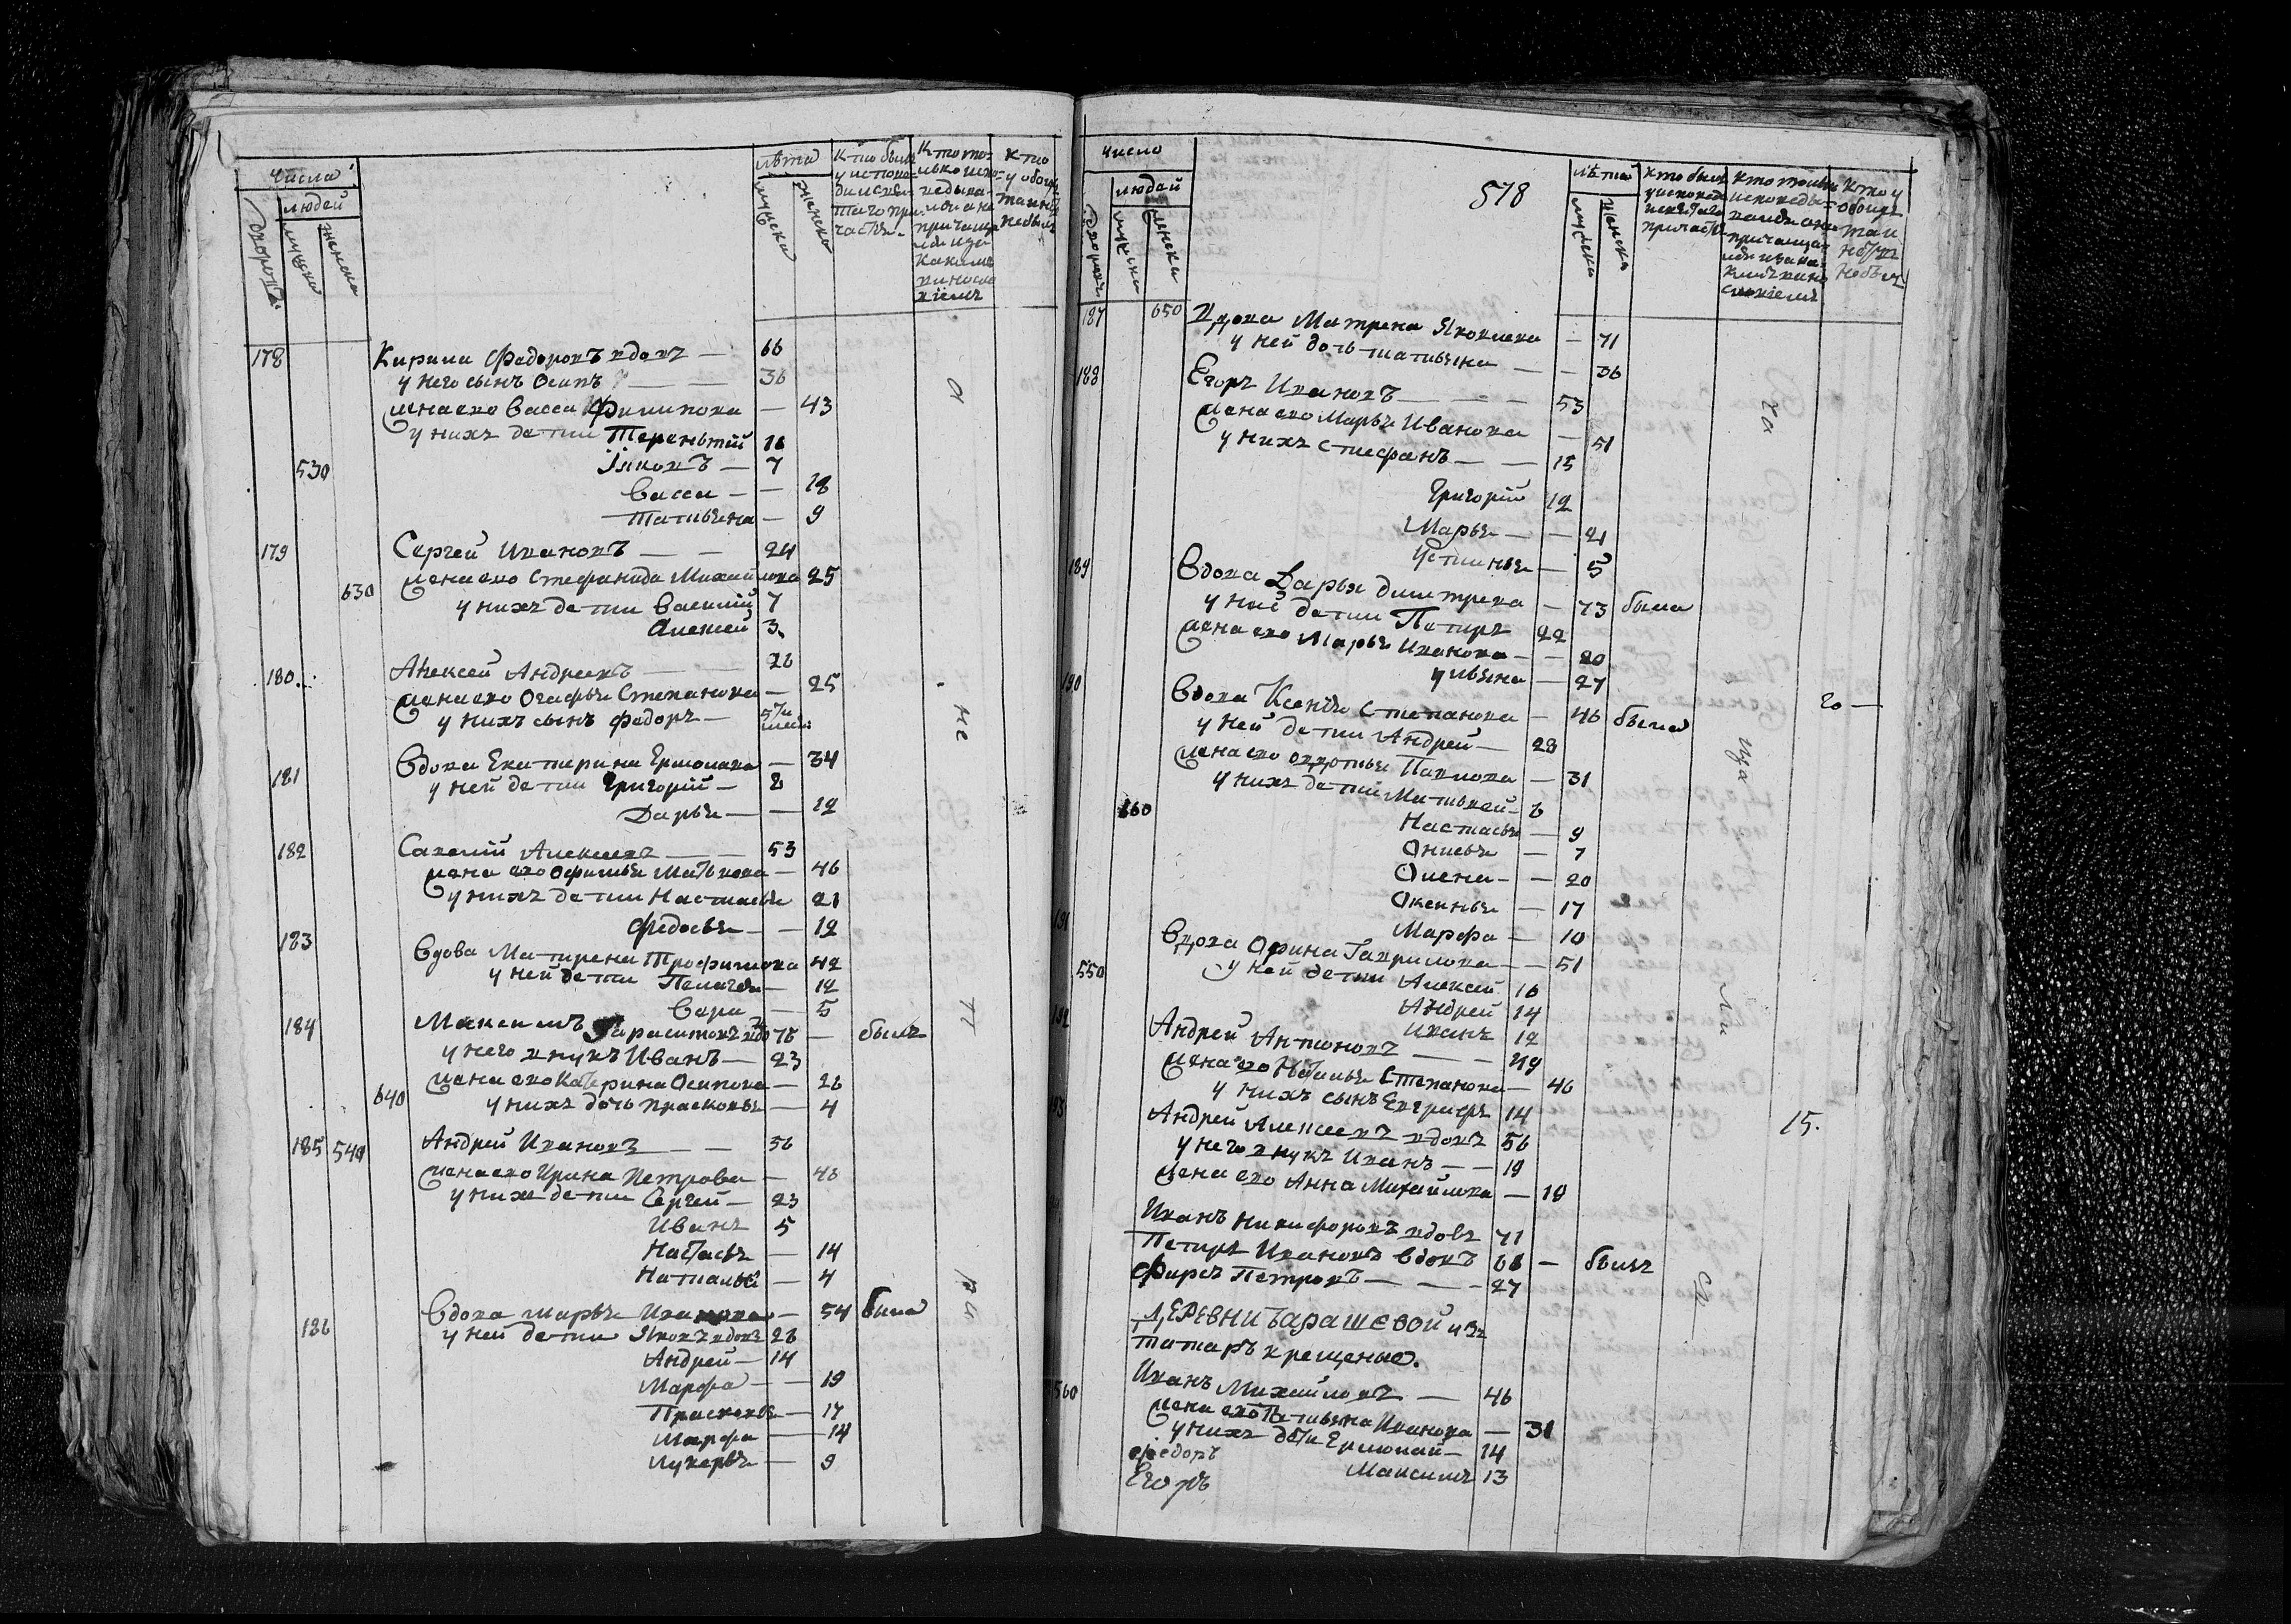 числа
людей
дворовъ
мужска
женска
лѣта
мужска
женска
кто былъ
у испове-
ди и свя-
таго при-
частия
кто то-
лько испо-
ведыва-
лся а не
причаща-
лся и за
какимъ
виносло
виемъ
кто
у обоихъ
таинъ
не былъ
178 Кирила Федоровъ вдовъ — 66
у него сынъ Осипъ — 36
жена ево Васса Филипова — 43
у нихъ дети Терентий 16
530 Яковъ — 7
Васса — 18
Татьяна — 9
179 Сергей Ивановъ — 24
жена ево Стефанида Михайлова 25
630 у нихъ дети Василий 7
Алексей 3
180 Алексей Андреевъ — 26
жена ево Агафья Степанова — 25
у нихъ сынъ Федоръ —
181 Вдова Екатерина Ермолаева — 34
у ней дети Григорий — 8
Дарья — 12
182 Савелий Алексеевъ — 53
жена ево Офимья Матвеева — 46
у нихъ дети Настасья 21
Федосья — 12
183 Вдова Матрена Трофимова 42
у ней дети Пелагея — 12
Вара — 5
184 Максимъ Гараситовъ вдо 76 — былъ
у него внукъ Иванъ — 23
жена ево Катерина Осипова — 26
640 у нихъ дочь Прасковья — 4
185 540 Андрей Ивановъ — 56
жена ево Ирина Петрова — 48
у нихъ дети Сергей — 23
Иванъ 5
Настасья — 14
Наталья — 4
186 Вдова Марья Иванова — 54 была
у ней дети Яковъ вдовъ 26
Андрей — 14
Марфа — 19
Прасковья — 17
Марфа — 14
Лукерья — 9
число
людей
дворовъ
мужска
женска
578
лѣта
мужска
женска
кто былъ
у исповеди
и святаго
причастия
кто только
исповеды-
вался а не
причащал
ся и за ка-
кимъ вино
словиемъ
кто у
обоихъ
таи
нствъ
не былъ
187 650 Вдова Матрена Яковлева — 71
у ней дочь Татьяна — 36
188 Егоръ Ивановъ — 53
жена ево Марья Иванова — 51
у нихъ Стефанъ — 15
Григорий 12
Марья — 21
Устинья — 5
189 Вдова Дарья Димитрева — 73 была
у ней дети Петръ 22
жена ево Марья Иванова — 20
Ульяна — 27
190 Вдова Ксенья Степанова — 46 была
20 —
у ней дети Андрей — 28
жена ево Авдотья Павлова — 31
у нихъ дети Матвей — 6
660 Настасья — 9
Анисья — 7
Олена — 20
Оксинья — 17
Марфа — 10
191 Вдова Орина Гаврилова — 51
550 у ней дети Алексей 16
Андрей 14
Иванъ 12
192 Андрей Антоновъ — 49
жена ево Наталья Степанова — 46
у нихъ сынъ Евграфъ 14
193 Андрей Алексеевъ вдовъ 56
15.
у него внукъ Иванъ — 19
жена ево Анна Михайлова — 19
Иванъ Никифоровъ вдовъ 71
Петръ Ивановъ вдовъ 68 — былъ
Фирсъ Петровъ — 27
ДЕРЕВНИ БАРАШЕВОЙ изъ
татаръ крещеные.
560 Иванъ Михайловъ — 46
жена ево Татьяна Иванова — 31
у нихъ дети Ермолай — 14
Федоръ Максимъ 13
Егоръ